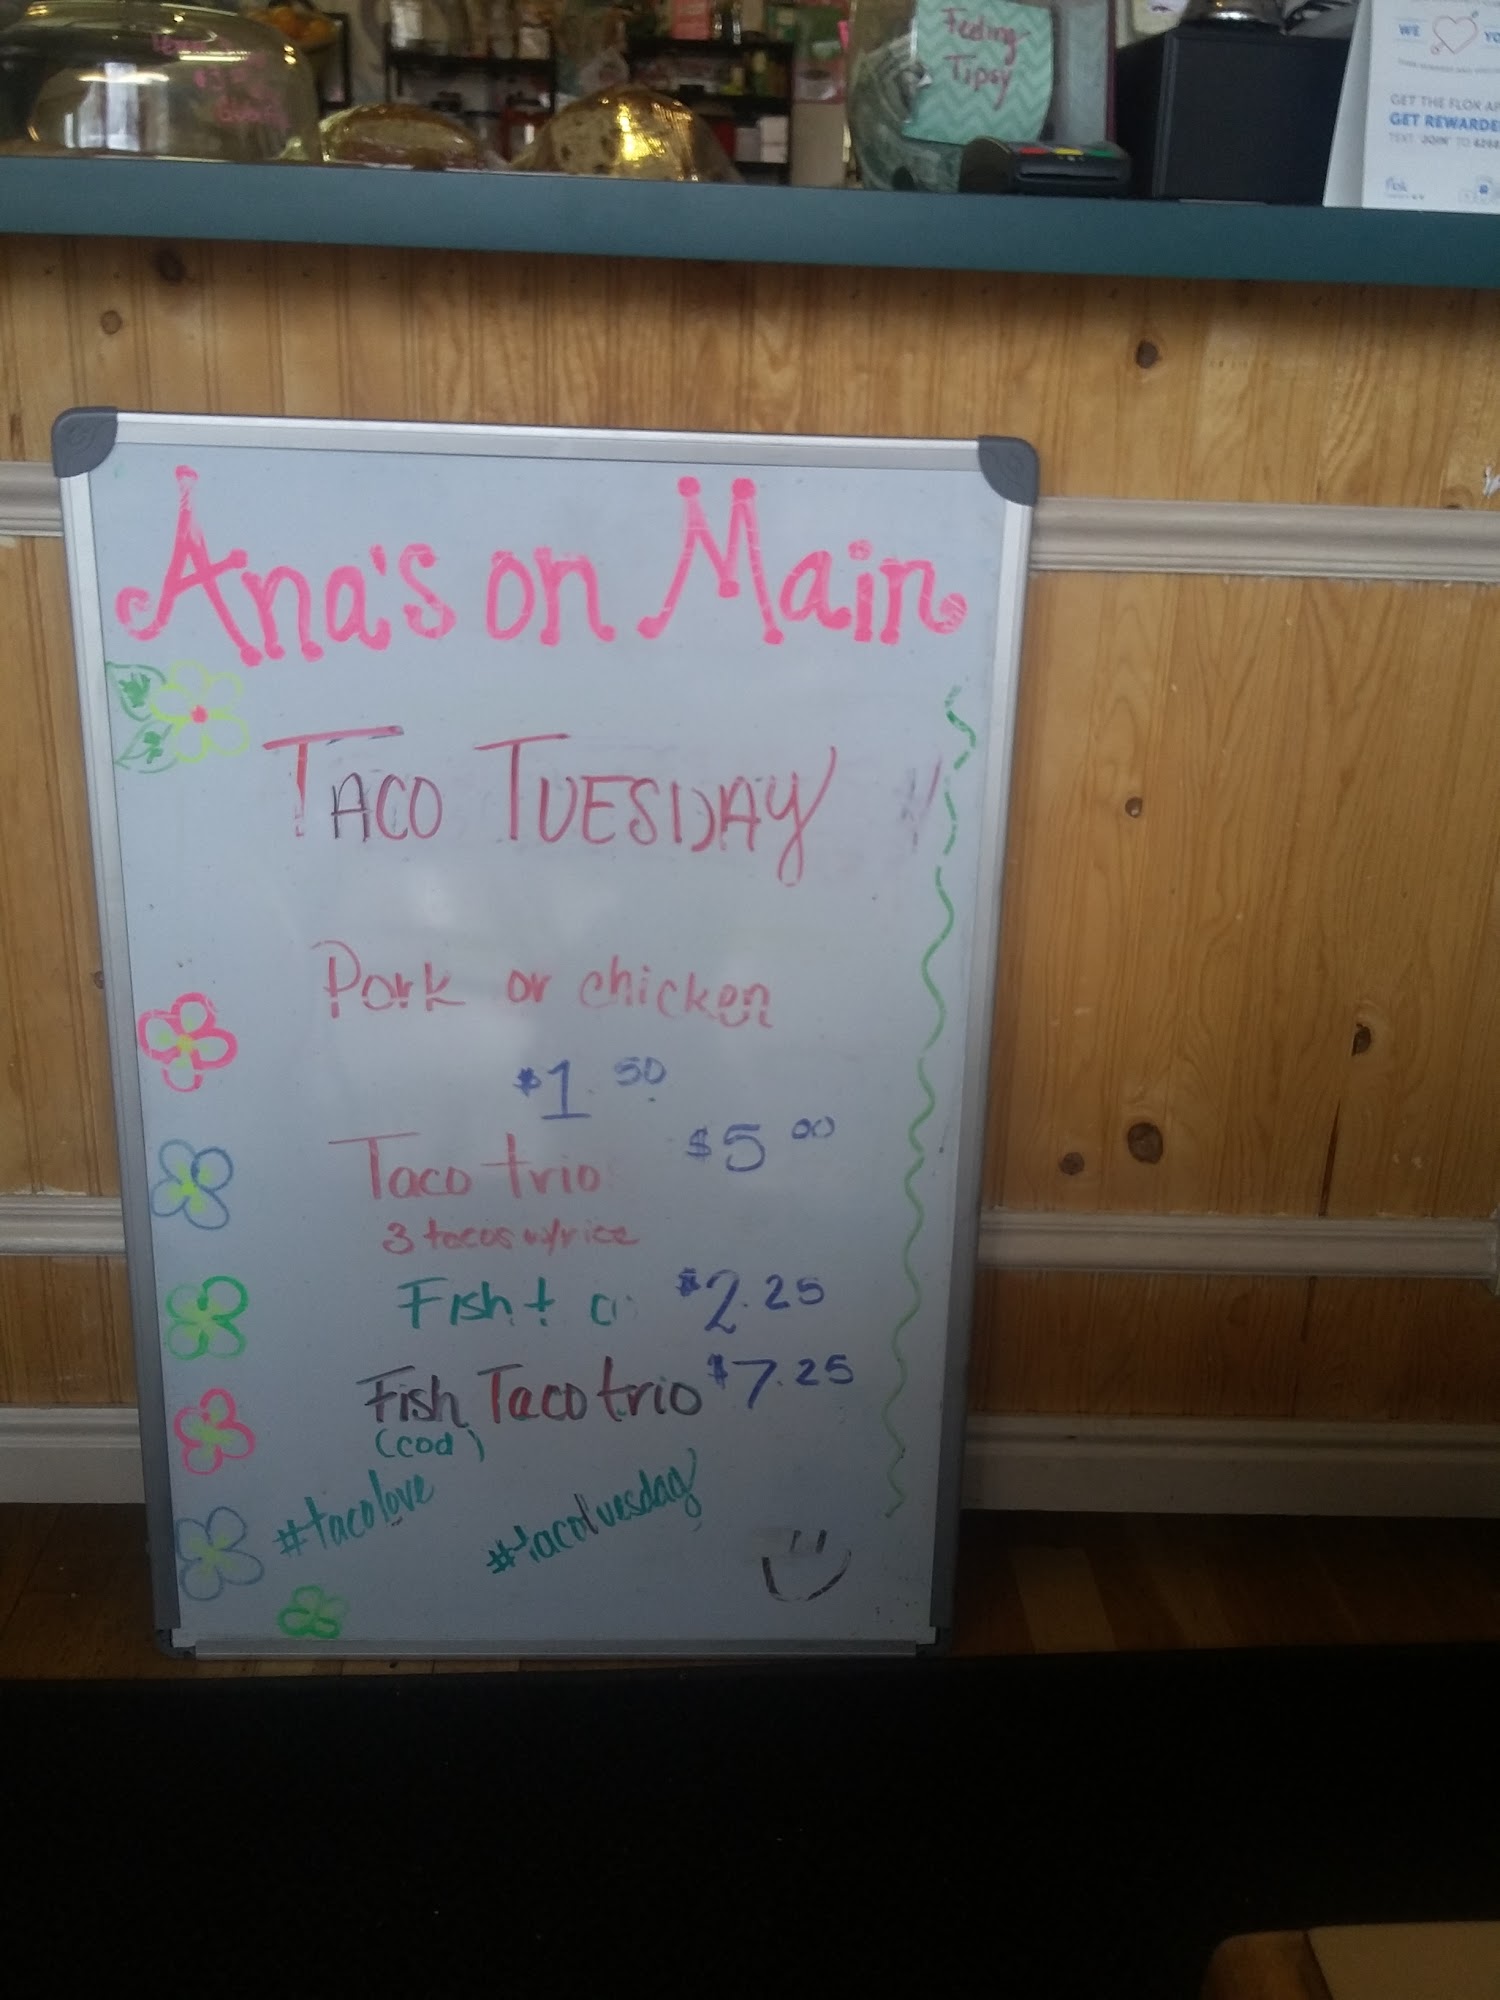 Feeling
Tipsy
WE
GET THE FLOK
GET
TEXT 'JOIN' TO
flok
Ana's on Main
TACO TUESDAY
Pork or chicken
$1.50
Taco trio $5 00
3 tacos w/rice
Fish $2.25
Fish Taco trio $7.25
(cod)
#tacolove
#tacotuesday